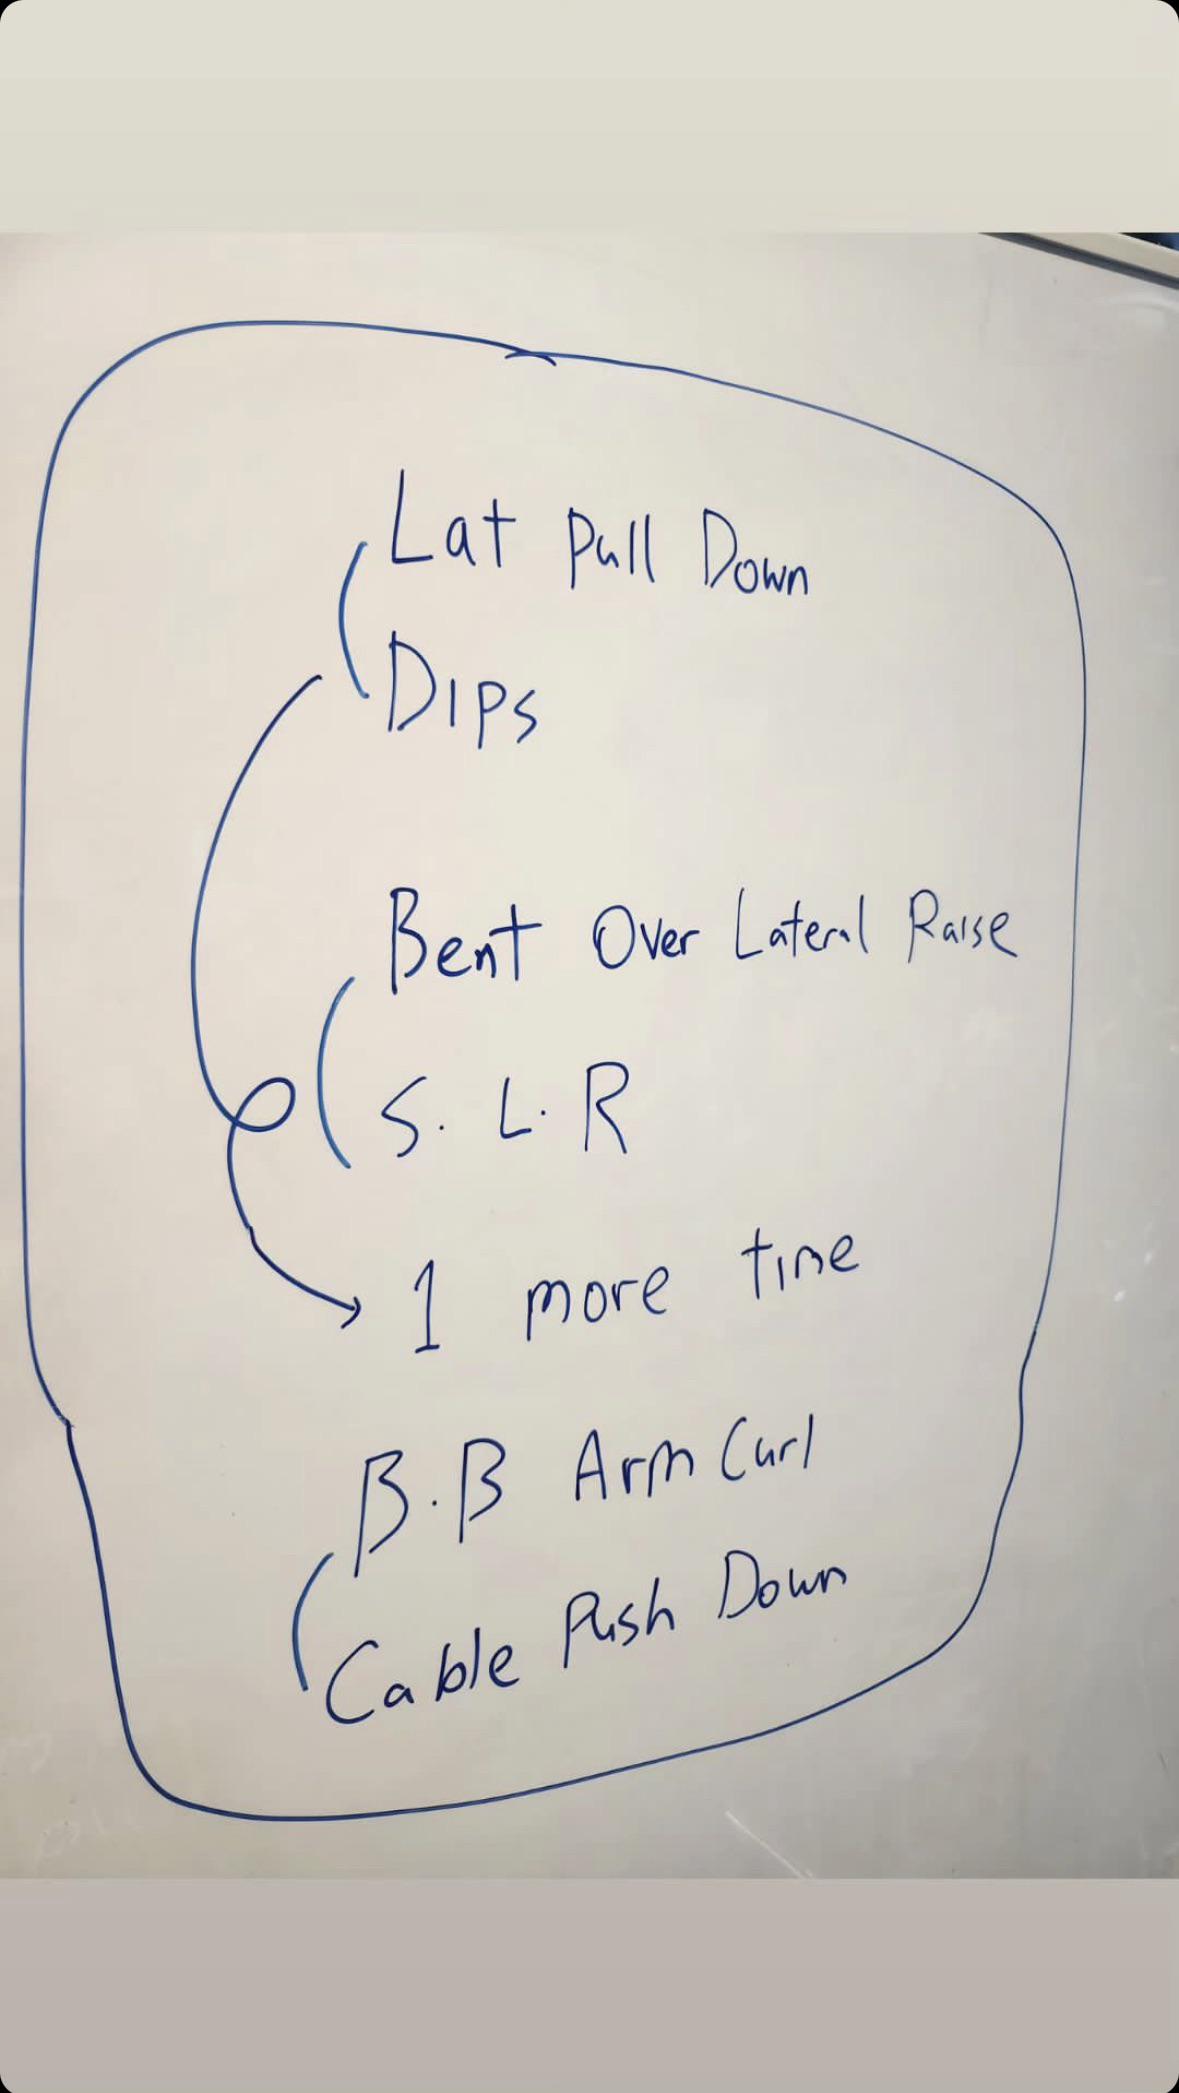 Lat Pull Down
Dips
Bent Over Lateral Raise
S. L. R
1 more time
B. B Arm Curl
Cable Push Down